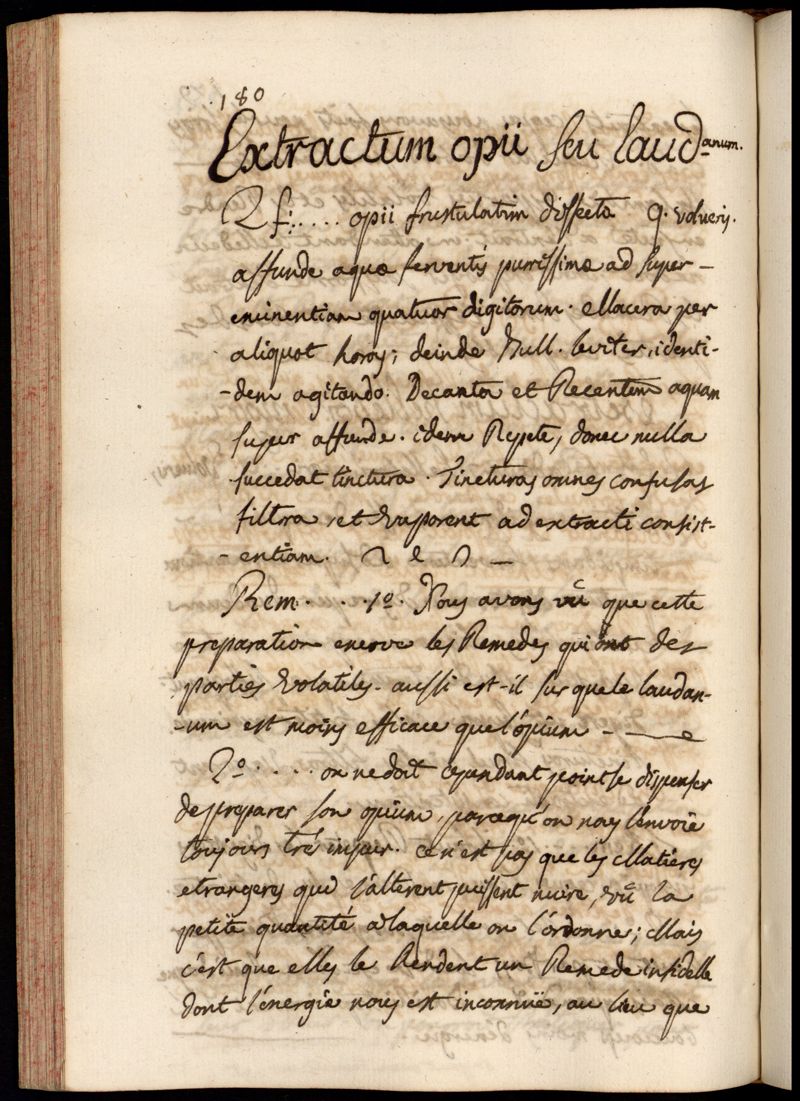 180
Extractum opii seu laudanum.
♃ f:..... opii frustulatim dissecta q. volueris.
affunde aquæ ferventis purissimæ ad super-
eminentiam quatuor digitorum. Macera per
aliquot horas; deinde bull. leviter, identi-
-dem agitando. Decanta et Recentem aquam
super affunde. idem Repete, donec nulla
succedat tinctura. Tincturas omnes confusas
filtra, et Evaporent ad extracti consist-
-entiam.
Rem. ... 1º. Nous avons vû que cette
preparation enerve les Remedes qui ont des
parties volatiles. aussi est-il sur que le laudan-
-um est moins efficace que l'opium - —
2º. .... on ne doit cependant point se dispenser
de preparer son opium, parcequ'on nous l'envoïe
toujours tré impur. ce n'est pas que les Matieres
etrangeres qui l'alterent puissent nuire, vû la
petite quantité a laquelle on l'ordonne; Mais
c'est que elles le Rendent un Remede infidelle
dont l'énergie nous est inconnüe, au lieu que